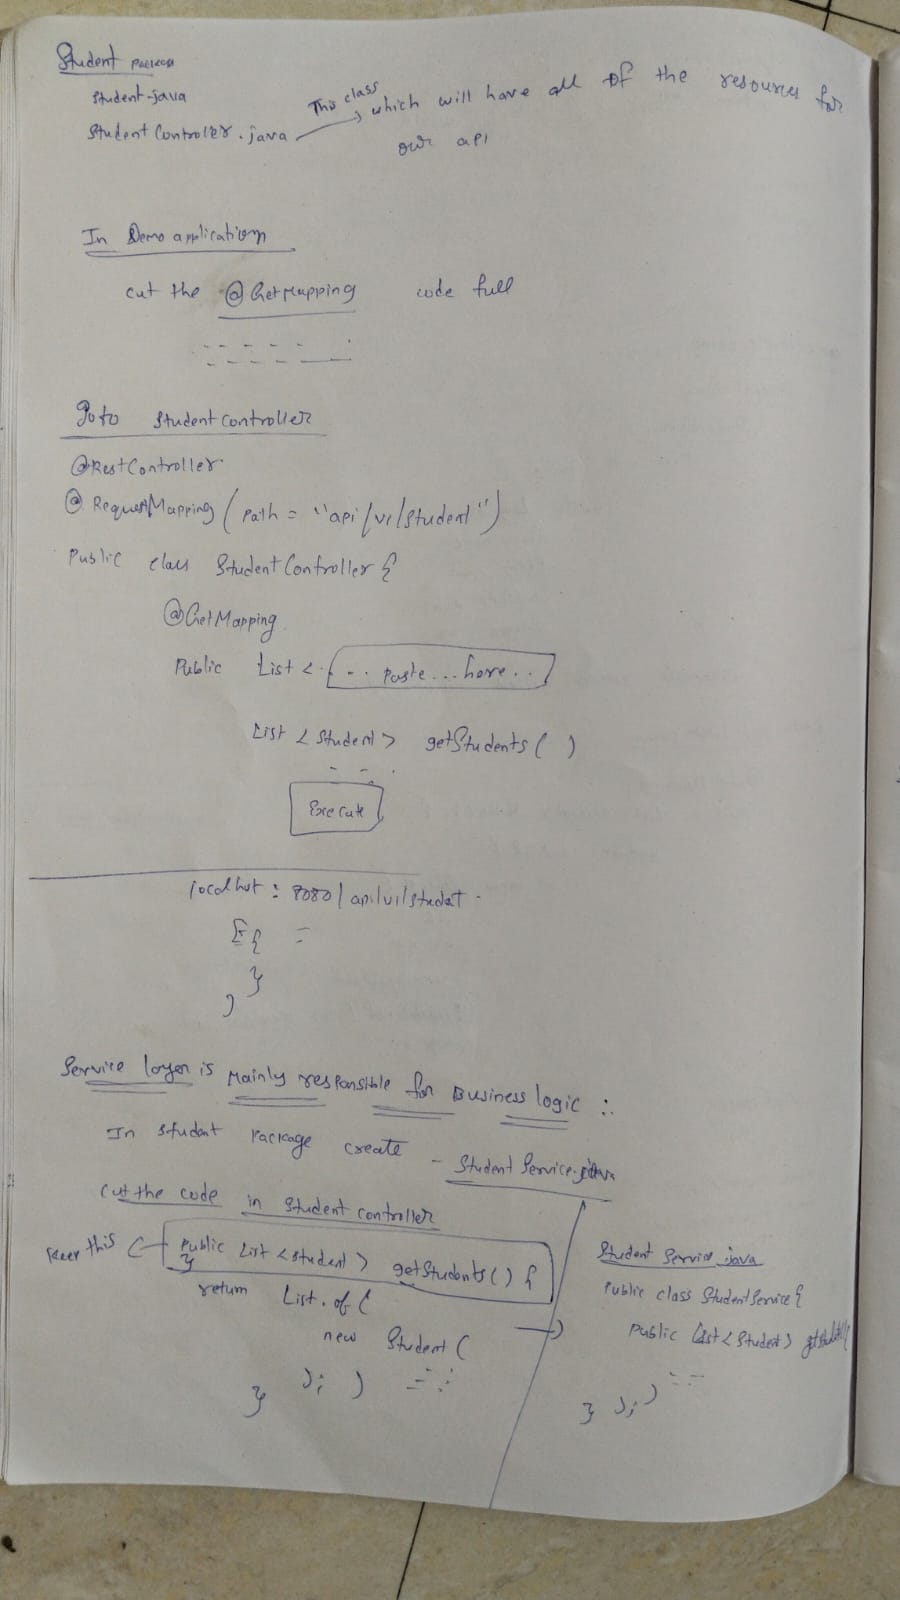 Student Package
Student.java
StudentControler.java
This class
which will have all of the resources for
our api
In Demo application
cut the @GetMapping code full
Go to Student controller
@RestController
@RequestMapping (Path = "api/v1/student")
Public class StudentController {
@GetMapping
Public List < . [ - .. Paste ... here .. ]
List < Student > getStudents ( )
Execute
localhost : 8080 / api/v1/student
[ {
}
]
Service layer is Mainly responsible for Business logic :
In student Package create - Student Service.java
Cut the code in Student controller
keep this
Public List < student > getStudents ( ) {
}
return List.of (
new Student (
) ; )
}
Student Service.java
Public class StudentService {
Public List < Student > getStudents() {
} ) ; )